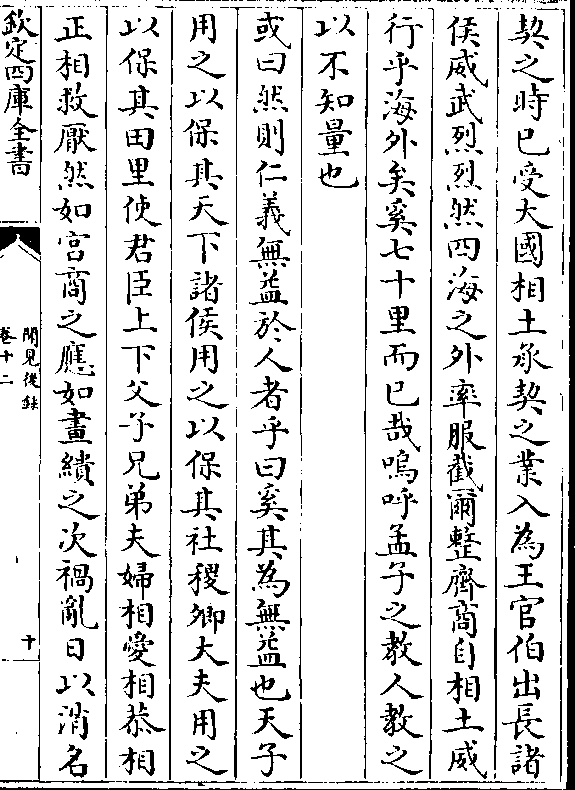 契之時已受大國相土承契之業入為王官伯出長諸
侯威武烈烈然四海之外率服截爾整齊商自相土威
行乎海外矣奚七十里而已哉嗚呼孟子之教人教之
以不知量也
或曰然則仁義無益於人者乎曰奚其為無益也天子
用之以保其天下諸侯用之以保其社稷卿大夫用之
以保其田里使君臣上下父子兄弟夫婦相愛相恭相
正相救厭然如宮商之應如畫繢之次禍亂日以消名
欽定四庫全書
聞見後錄
卷十二
十